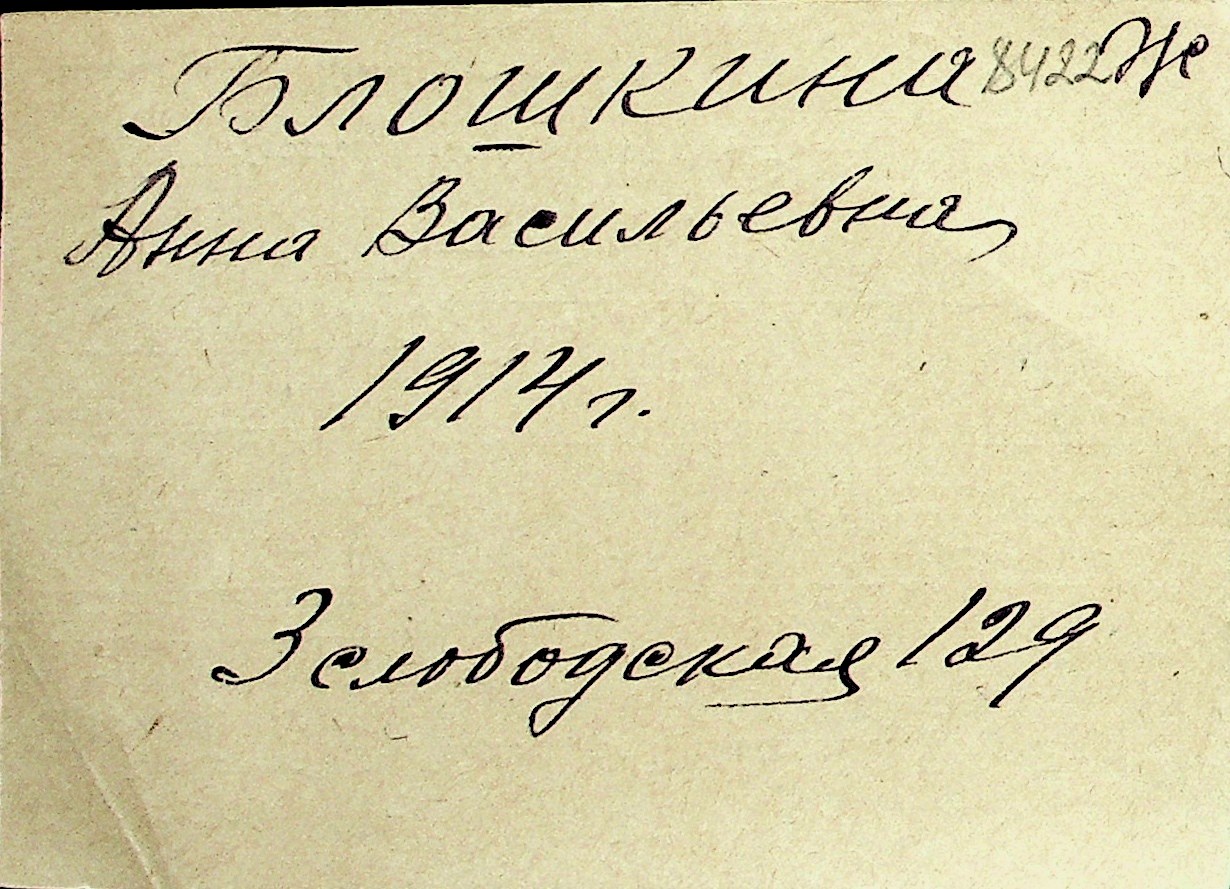 Блошкина 8422 Же
Анна Васильевна
1914 г.
3 слободская 129